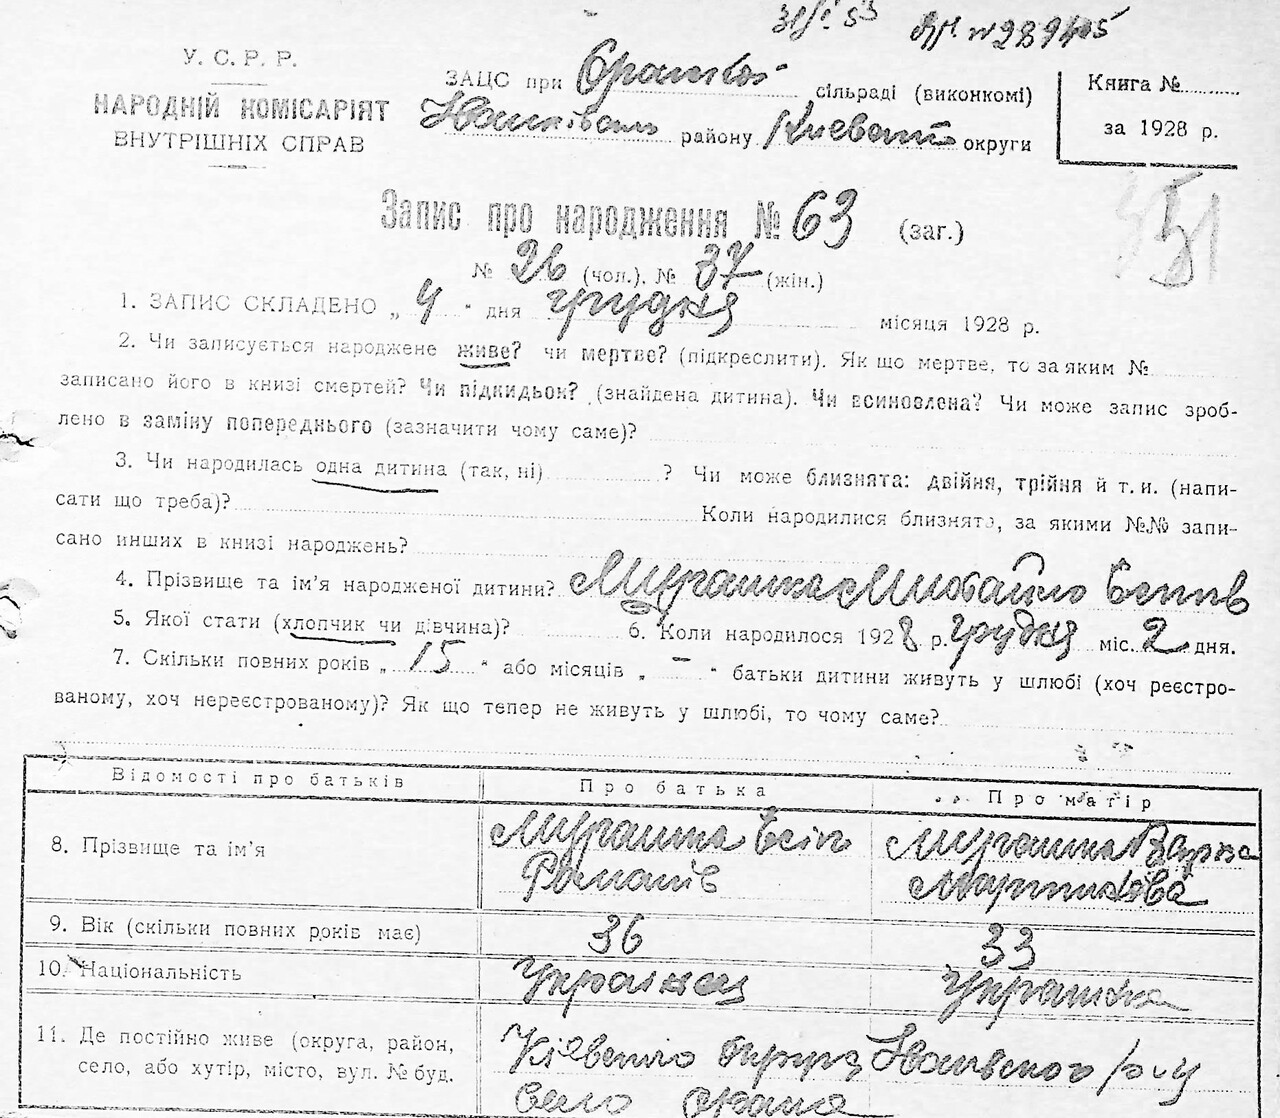 31/I 53
У. С. Р. Р.
НАРОДНІЙ КОМІСАРІЯТ
ВНУТРІШНІХ СПРАВ
ЗАЦС при сільраді (виконкомі)
району округи
Книга №
за 1928 р.
Запис про народження № 63 (заг.)
№ 26 (чол.). № 37 (жін.)
1. ЗАПИС СКЛАДЕНО „ 4 " дня грудня місяця 1928 р.
2. Чи записується народжене живе? чи мертве? (підкреслити). Як що мертве, то за яким №
записано його в книзі смертей? Чи підкидьок? (знайдена дитина). Чи всиновлена? Чи може запис зроб-
лено в заміну попереднього (зазначити чому саме)?
3. Чи народилась одна дитина (так, ні) ? Чи може близнята: двійня, трійня й т. и. (напи-
сати що треба)? Коли народилися близнята, за якими №№ запи-
сано инших в книзі народжень?
4. Прізвище та ім'я народженої дитини? Мурашка Михайло Єсипів
5. Якої стати (хлопчик чи дівчина)? 6. Коли народилося 1928 р. грудня міс. 2 дня.
7. Скільки повних років „ 15 " або місяців „ – " батьки дитини живуть у шлюбі (хоч реєстро-
ваному, хоч нереєстрованому)? Як що тепер не живуть у шлюбі, то чому саме?
Відомості про батьків Про батька Про матір
8. Прізвище та ім'я Мурашка Єсіп Мурашка Варка
Романів
9. Вік (скільки повних років має) 36 33
10. Національність Українец Українка
11. Де постійно живе (округа, район,
село, або хутір, місто, вул. № буд.
Село